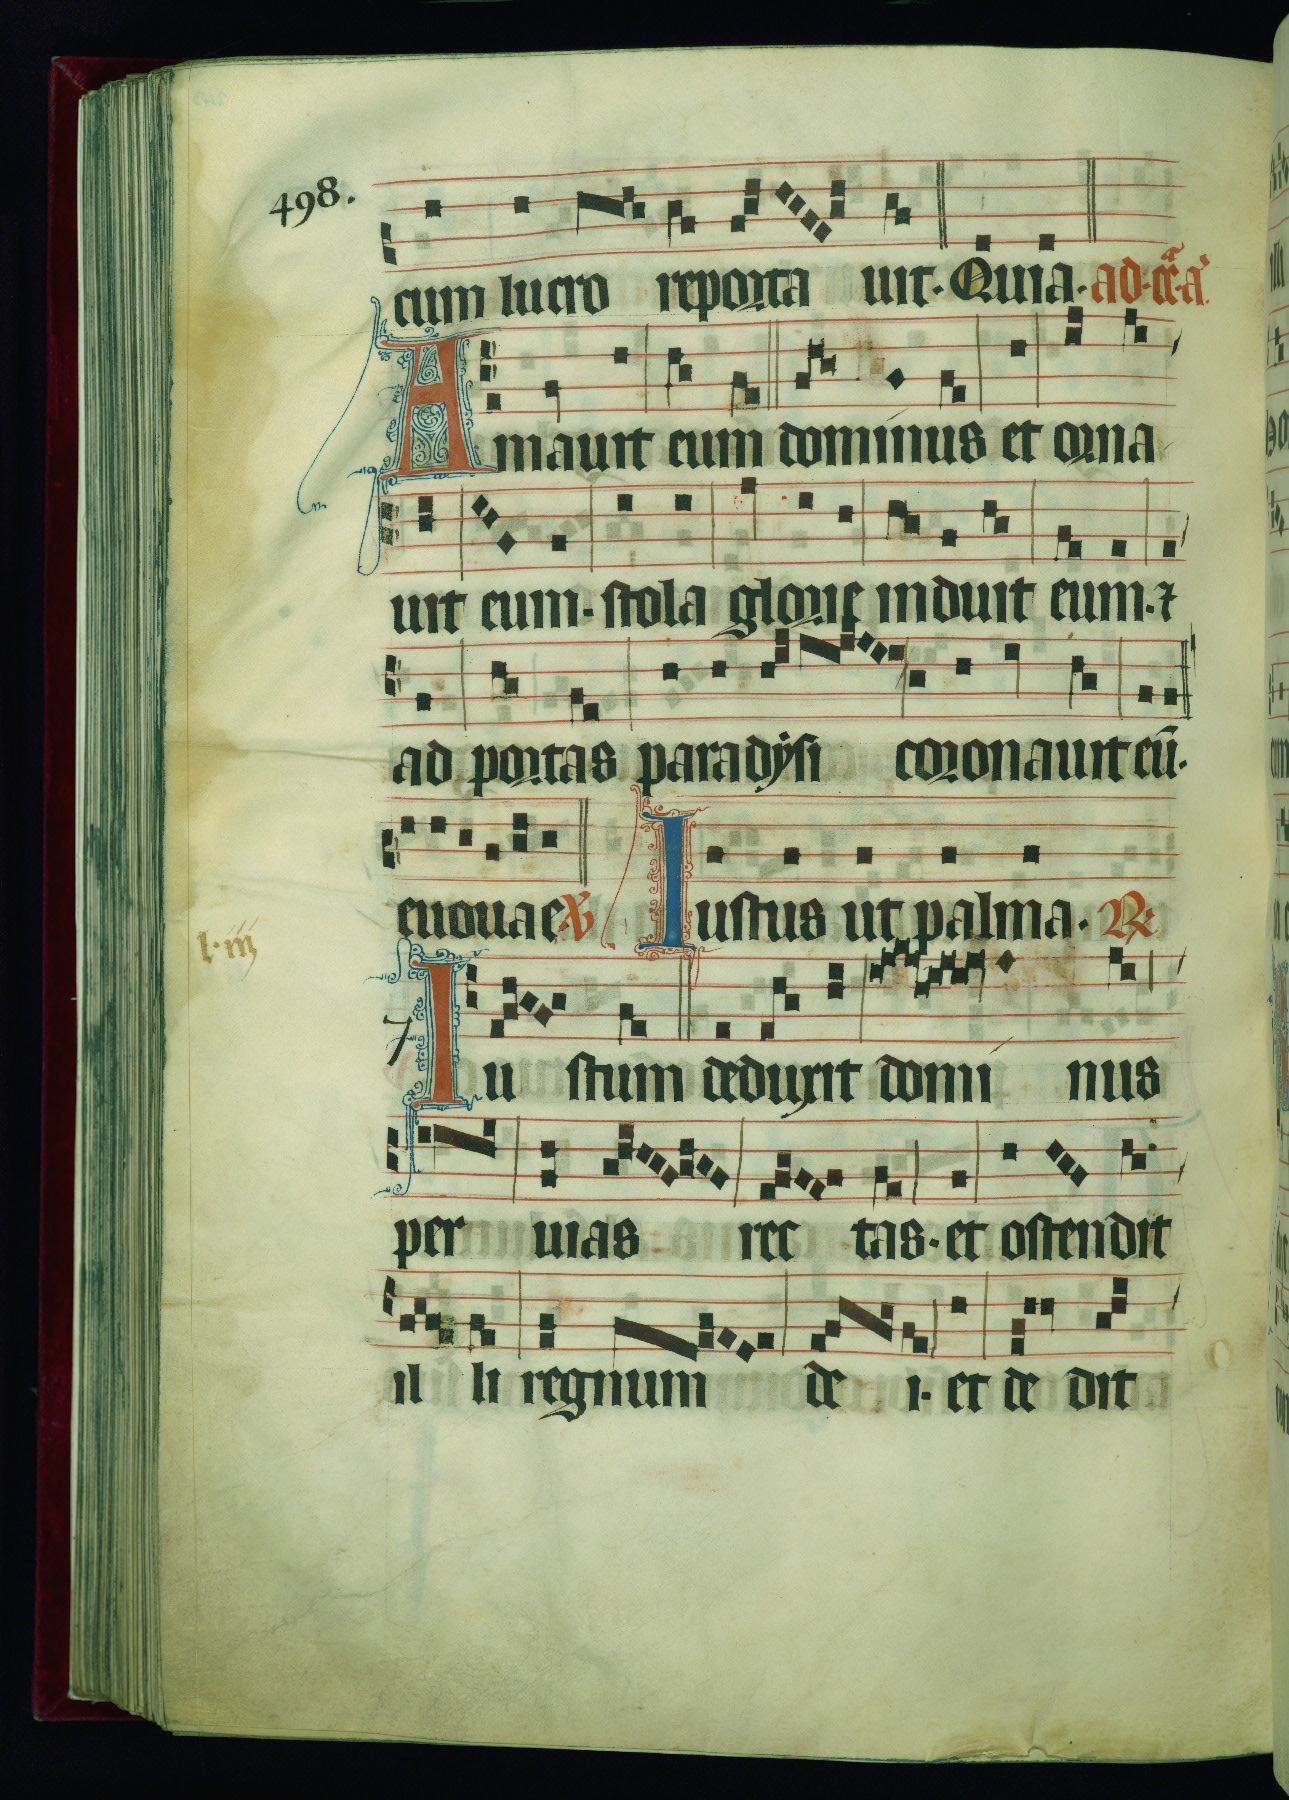 498.
cum lucro reporta uit. Quia. ad. cr̄a. a.
Amauit eum dominus et orna
uit eum. stola glorie induit eum. ⁊
ad portas paradẏsi coronauit eū.
euouae. Iustus ut palma. R
l. iii
7
Iu stum deduxit domi nus
per uias rec tas. et ostendit
il li regnum de i. et de dit